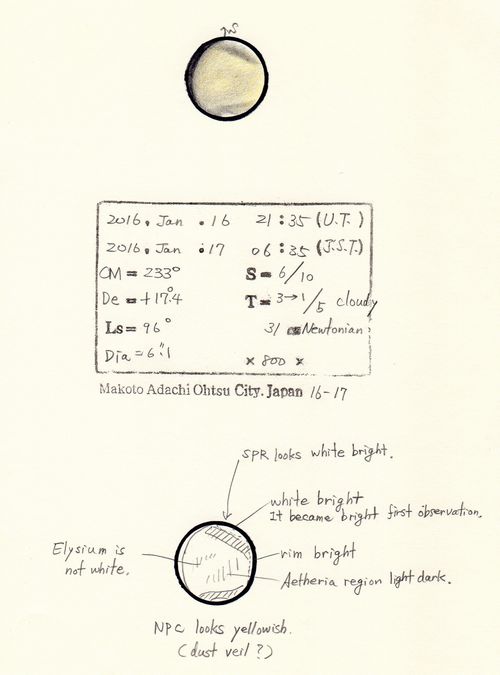 2016. Jan. 16 21:35 (U.T.)
2016. Jan. 17 06:35 (J.S.T.)
CM = 233° S = 6/10
De = +17°.4 T = 3→1/5 cloudy
Ls = 96° 31 Newtonian
Dia = 6".1 × 800 ×
Makoto Adachi Ohtsu City. Japan 16-17
SPR looks white bright.
white bright
It became bright first observation.
Elysium is
not white.
rim bright
Aetheria region light dark.
NPC looks yellowish.
(dust veil?)